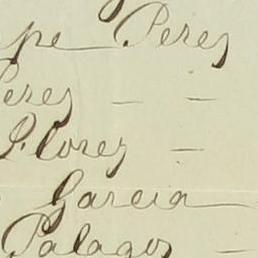 pe Peres
Peres — —
Flores —
Garcia
Palagos —